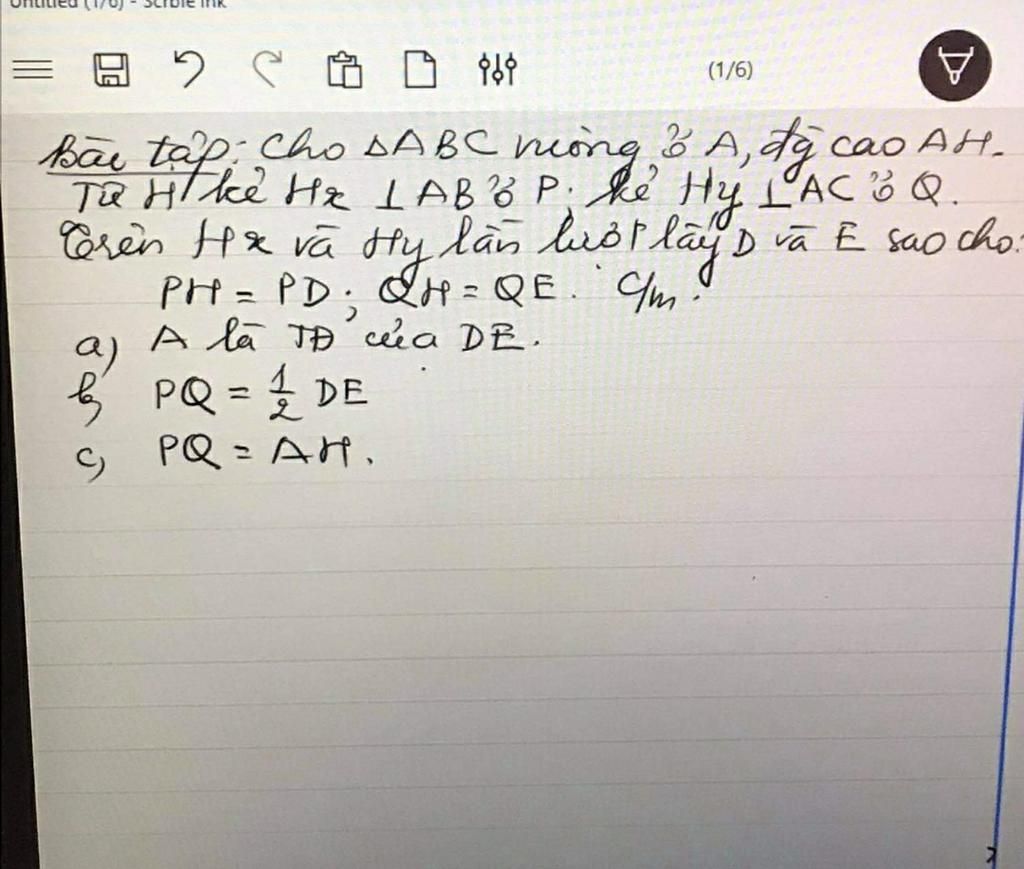 Untitled (1/6) - Scrble Ink
(1/6)
Bài tập: Cho ΔABC vuông ở A, đg cao AH.
Từ H kẻ Hx ⊥ AB ở P; kẻ Hy ⊥ AC ở Q.
Trên Hx và Hy lần lượt lấy D và E sao cho:
PH = PD; QH = QE. C/m:
a) A là TĐ của DE.
b) PQ = 1/2 DE
c) PQ = AH.